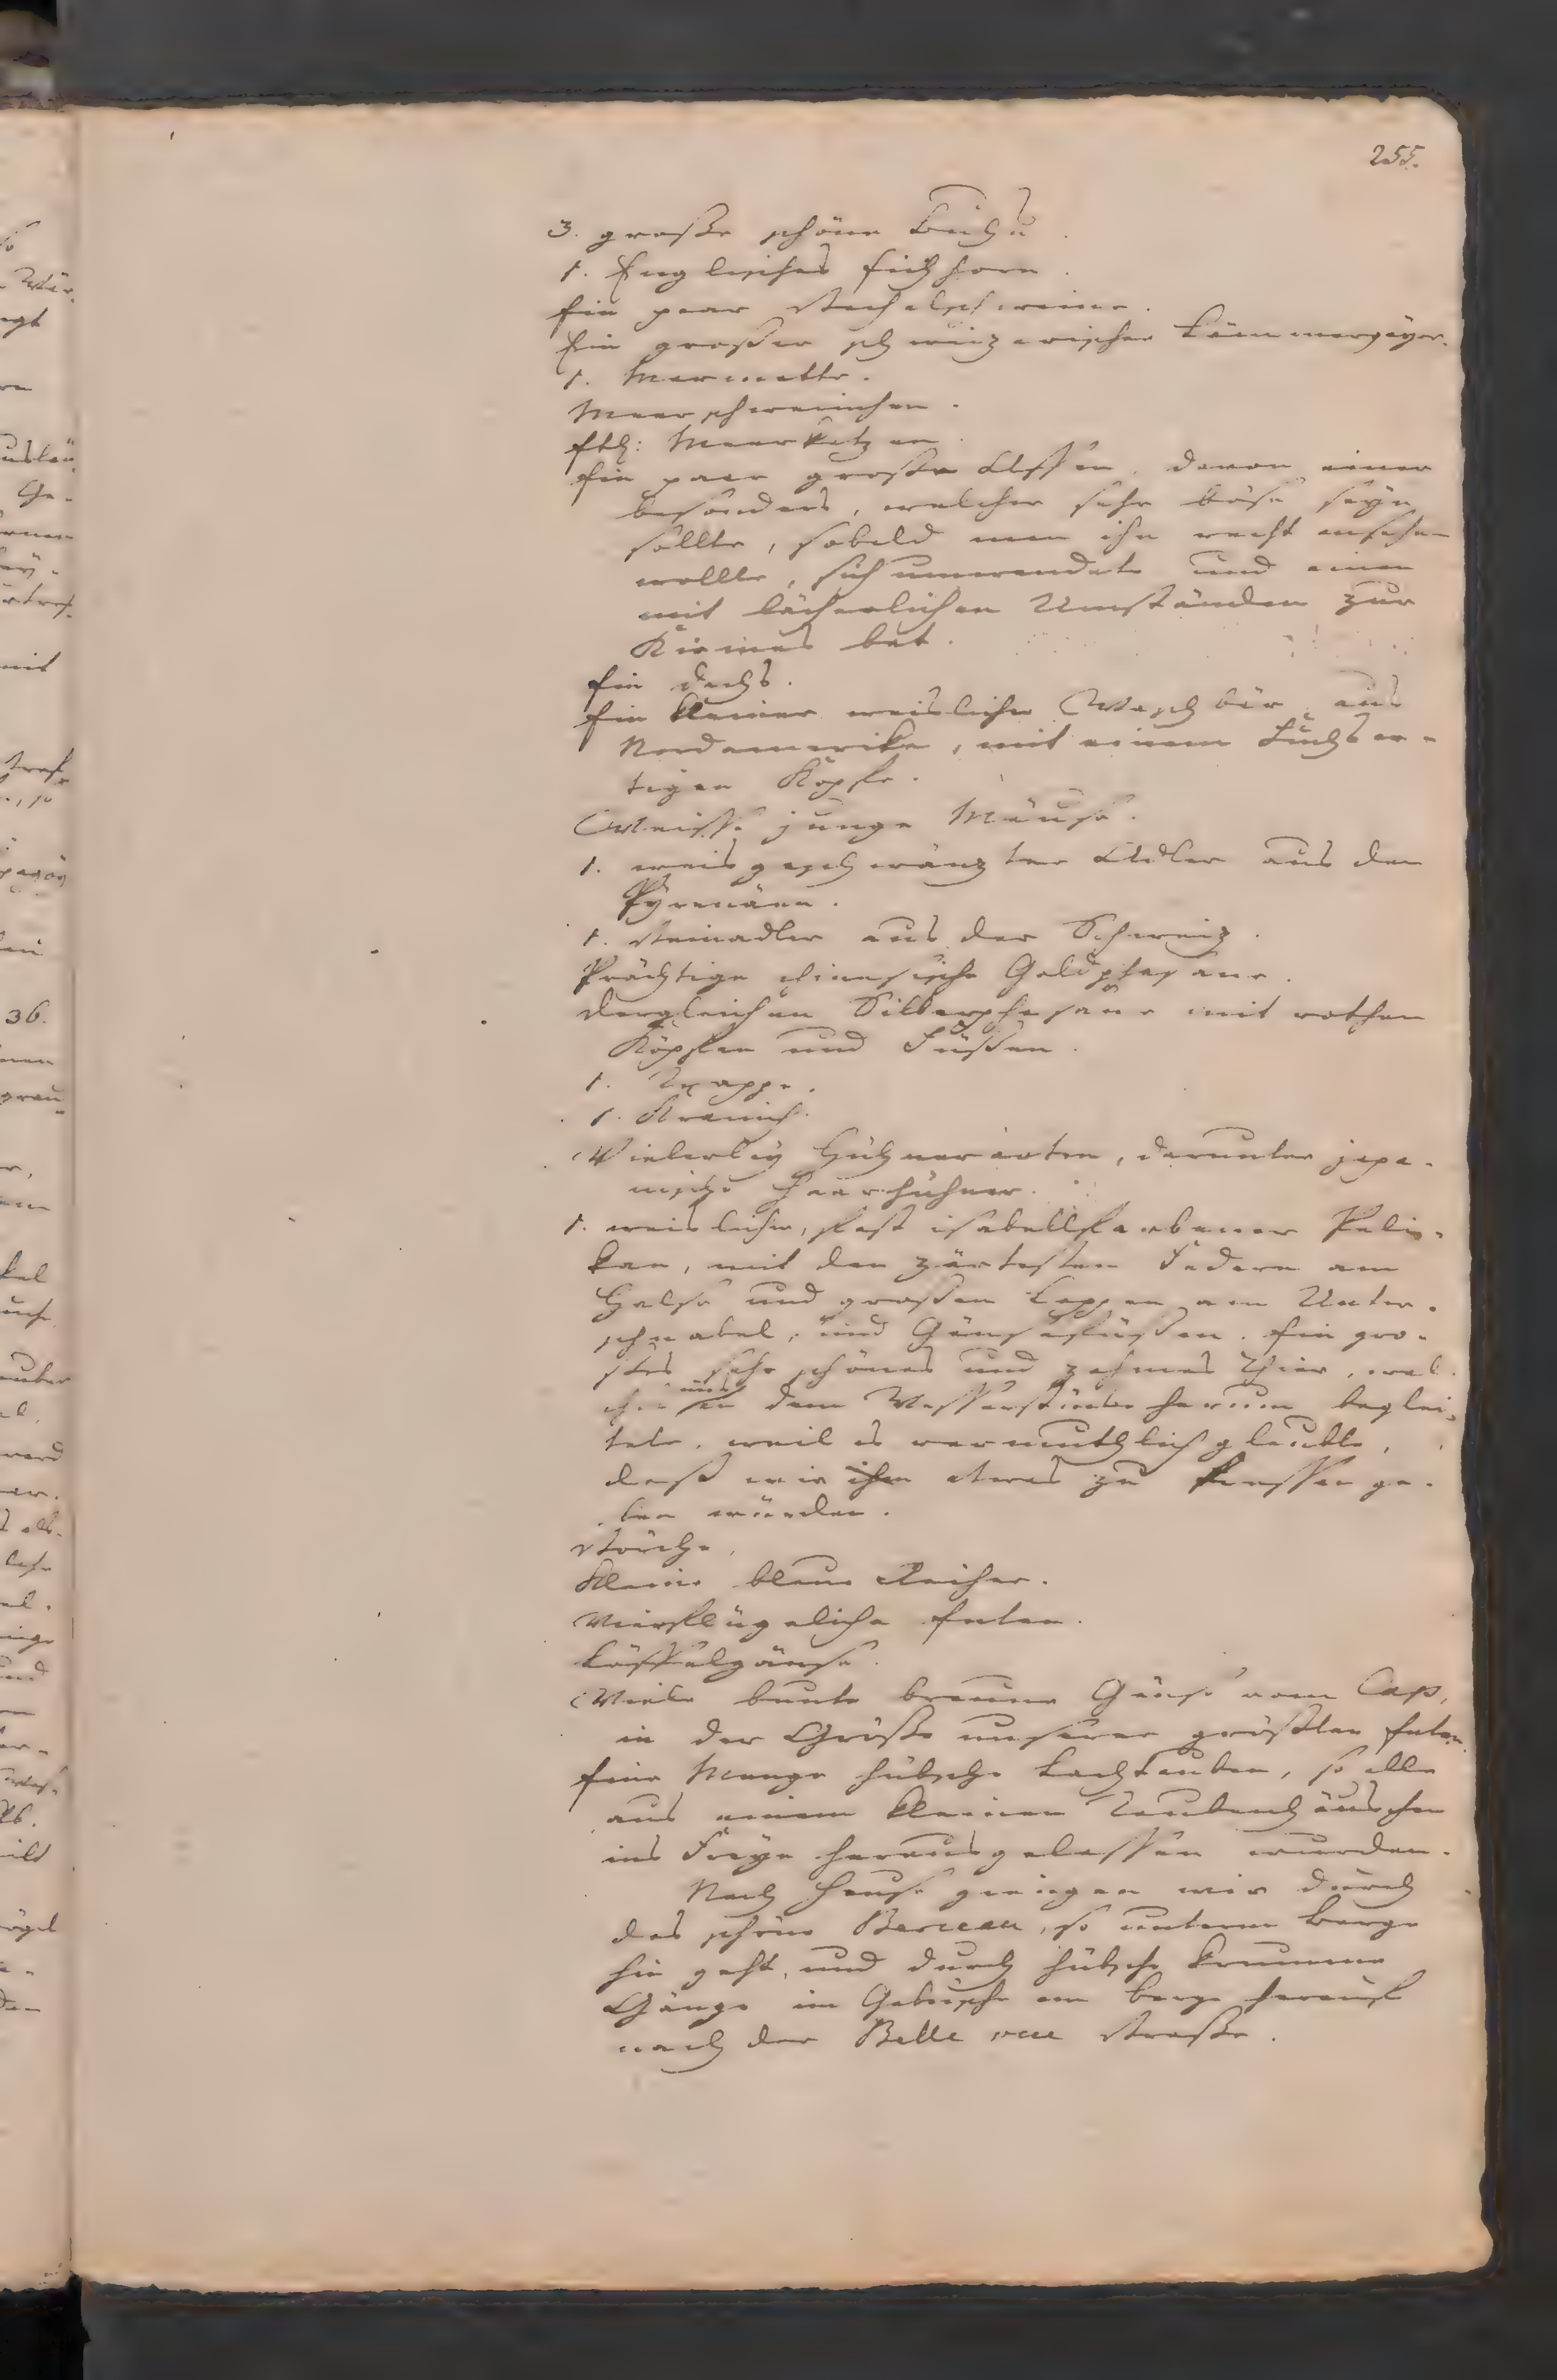 255.
3. große schöne Buhu.
1. Englisches Eichhorn.
Ein paar Stachelschweine.
Ein grosser schweizerischer Lämmergeyer.
1. Marmotte.
Meerschweinchen.
Etl: Meerkatzen.
Ein paar große Affen, davon einer
besonders, welcher sehr böse seyn
sollte, sobald man ihn recht ansehen
wollte, sich umwendete und einen
mit lächerlichen Umständen zur
Kirmes bat.
Ein Dachs.
Ein kleiner weislicher Waschbär aus
Nordamerika, mit einem Fuchsar-
tigen Kopfe.
Weisse junge Mäuse.
1. weisgeschwänzter Adler aus den
Pyrenäen.
1. Steinadler aus der Schweiz.
Prächtige chinesische Goldphasane.
Dergleichen Silberphasane mit rothen
Köpfen und Füssen.
1. Trappe.
1. Kranich.
Vielerley Hühnerarten, darunter japa-
nische Haarhühner.
1. weislicher, fast isabellfarbener Peli-
kan, mit den zärtesten Federn am
Halse und grossen Lappen am Unter-
schnabel, und Gänsefüssen. Ein gro-
ßes sehr schönes und zahmes Thier, wel-
ches uns an dem Wasserstücke herum beglei-
tete, weil es vermuthlich glaubte,
daß wir ihm etwas zu fressen ge-
ben würden.
Störche.
Kleine blaue Reiher.
Vierflügeliche Enten.
Löffelgänse.
Viele bunte braune Gänse vom Cap,
in der Größe unserer größten Enten.
Eine Menge hübsche Lachtauben, so alle
aus einem kleinen Taubenhäuschen
ins Freye herausgelassen wurden.
Nach Hause giengen wir durch
das schöne Berceau, so unterm Berge
hin geht, und durch hübsche krumme
Gänge im Gebüsche am Berge herauf
nach der Belle vue Straße.